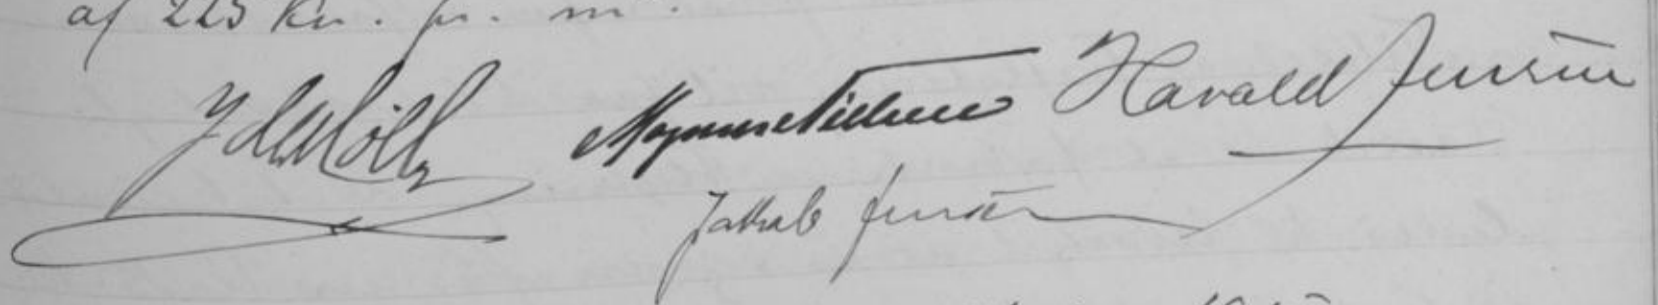 af 225 Kr. pr. m².
Magnus Nielsen Harald Jensen
Jakob Jensen